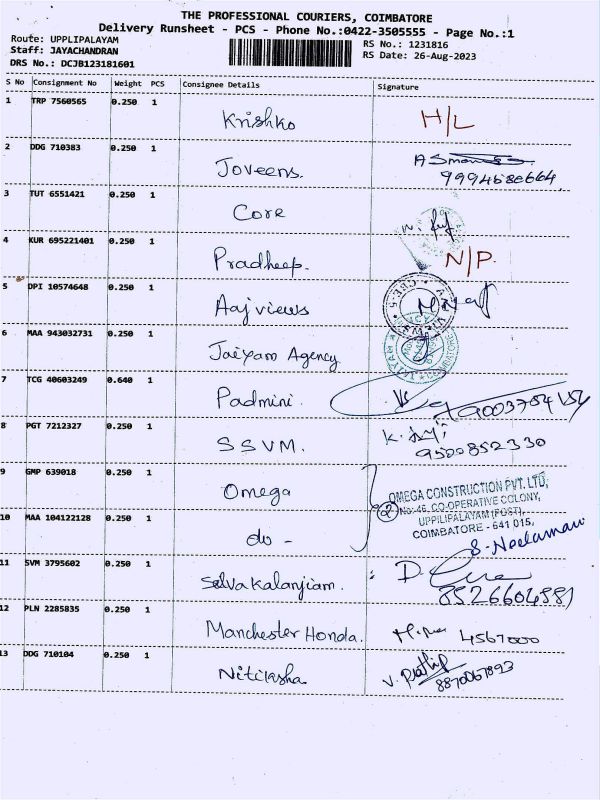 THE PROFESSIONAL COURIERS, COIMBATORE
Delivery Runsheet - PCS - Phone No.:0422-3505555 - Page No.:1
Route: UPPLIPALAYAM
Staff: JAYACHANDRAN
DRS No.: DCJB123181601
RS No.: 1231816
RS Date: 26-Aug-2023
S No Consignment No Weight PCS Consignee Details Signature
1 TRP 7560565 0.250 1 Krishko H/L
2 DDG 710383 0.250 1 Joveens.
9994686664
3 TUT 6551421 0.250 1 Core
4 KUR 695221401 0.250 1 Pradheep. N/P.
5 DPI 10574648 0.250 1 Aaj views
6 MAA 943032731 0.250 1 Jaiyam Agency
COIMBATORE
7 TCG 40603249 0.640 1 Padmini.
8 PGT 7212327 0.250 1 SSVM.
9500852330
9 GMP 639018 0.250 1 Omega
OMEGA CONSTRUCTION PVT. LTD,
② No:46, CO-OPERATIVE COLONY,
UPPILIPALAYAM (POST),
COIMBATORE - 641 015,
10 MAA 104122128 0.250 1 do -
S. Neelamani
11 SVM 3795602 0.250 1 Selvakalanjiam. : D.
8526604581
12 PLN 2285835 0.250 1 Manchester Honda. 4567000
13 DDG 710104 0.250 1 Nitiksha V. Prathip
8870067893